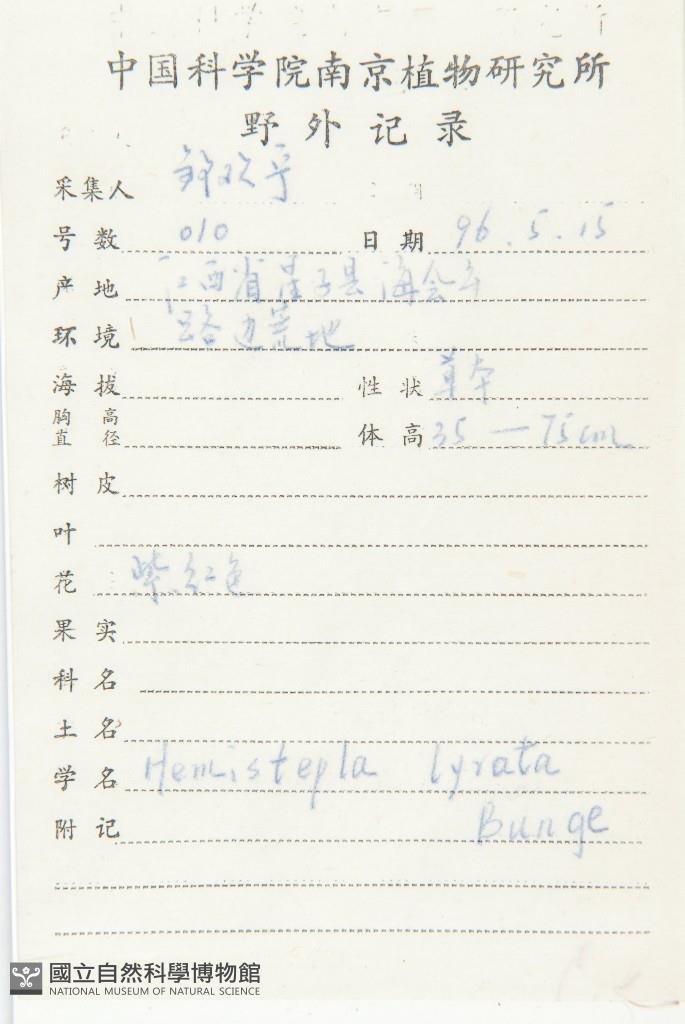 中国科学院南京植物研究所
野外记录
采集人
号数 010 日期 96.5.15
产地 江西省星子县海会
环境 路边荒地
海拔 性状 草本
胸高直径 体高 35—75cm
树皮
叶
花 紫红色
果实
科名
土名
学名 Hemistepla lyrata
附记 Bunge
國立自然科學博物館
NATIONAL MUSEUM OF NATURAL SCIENCE